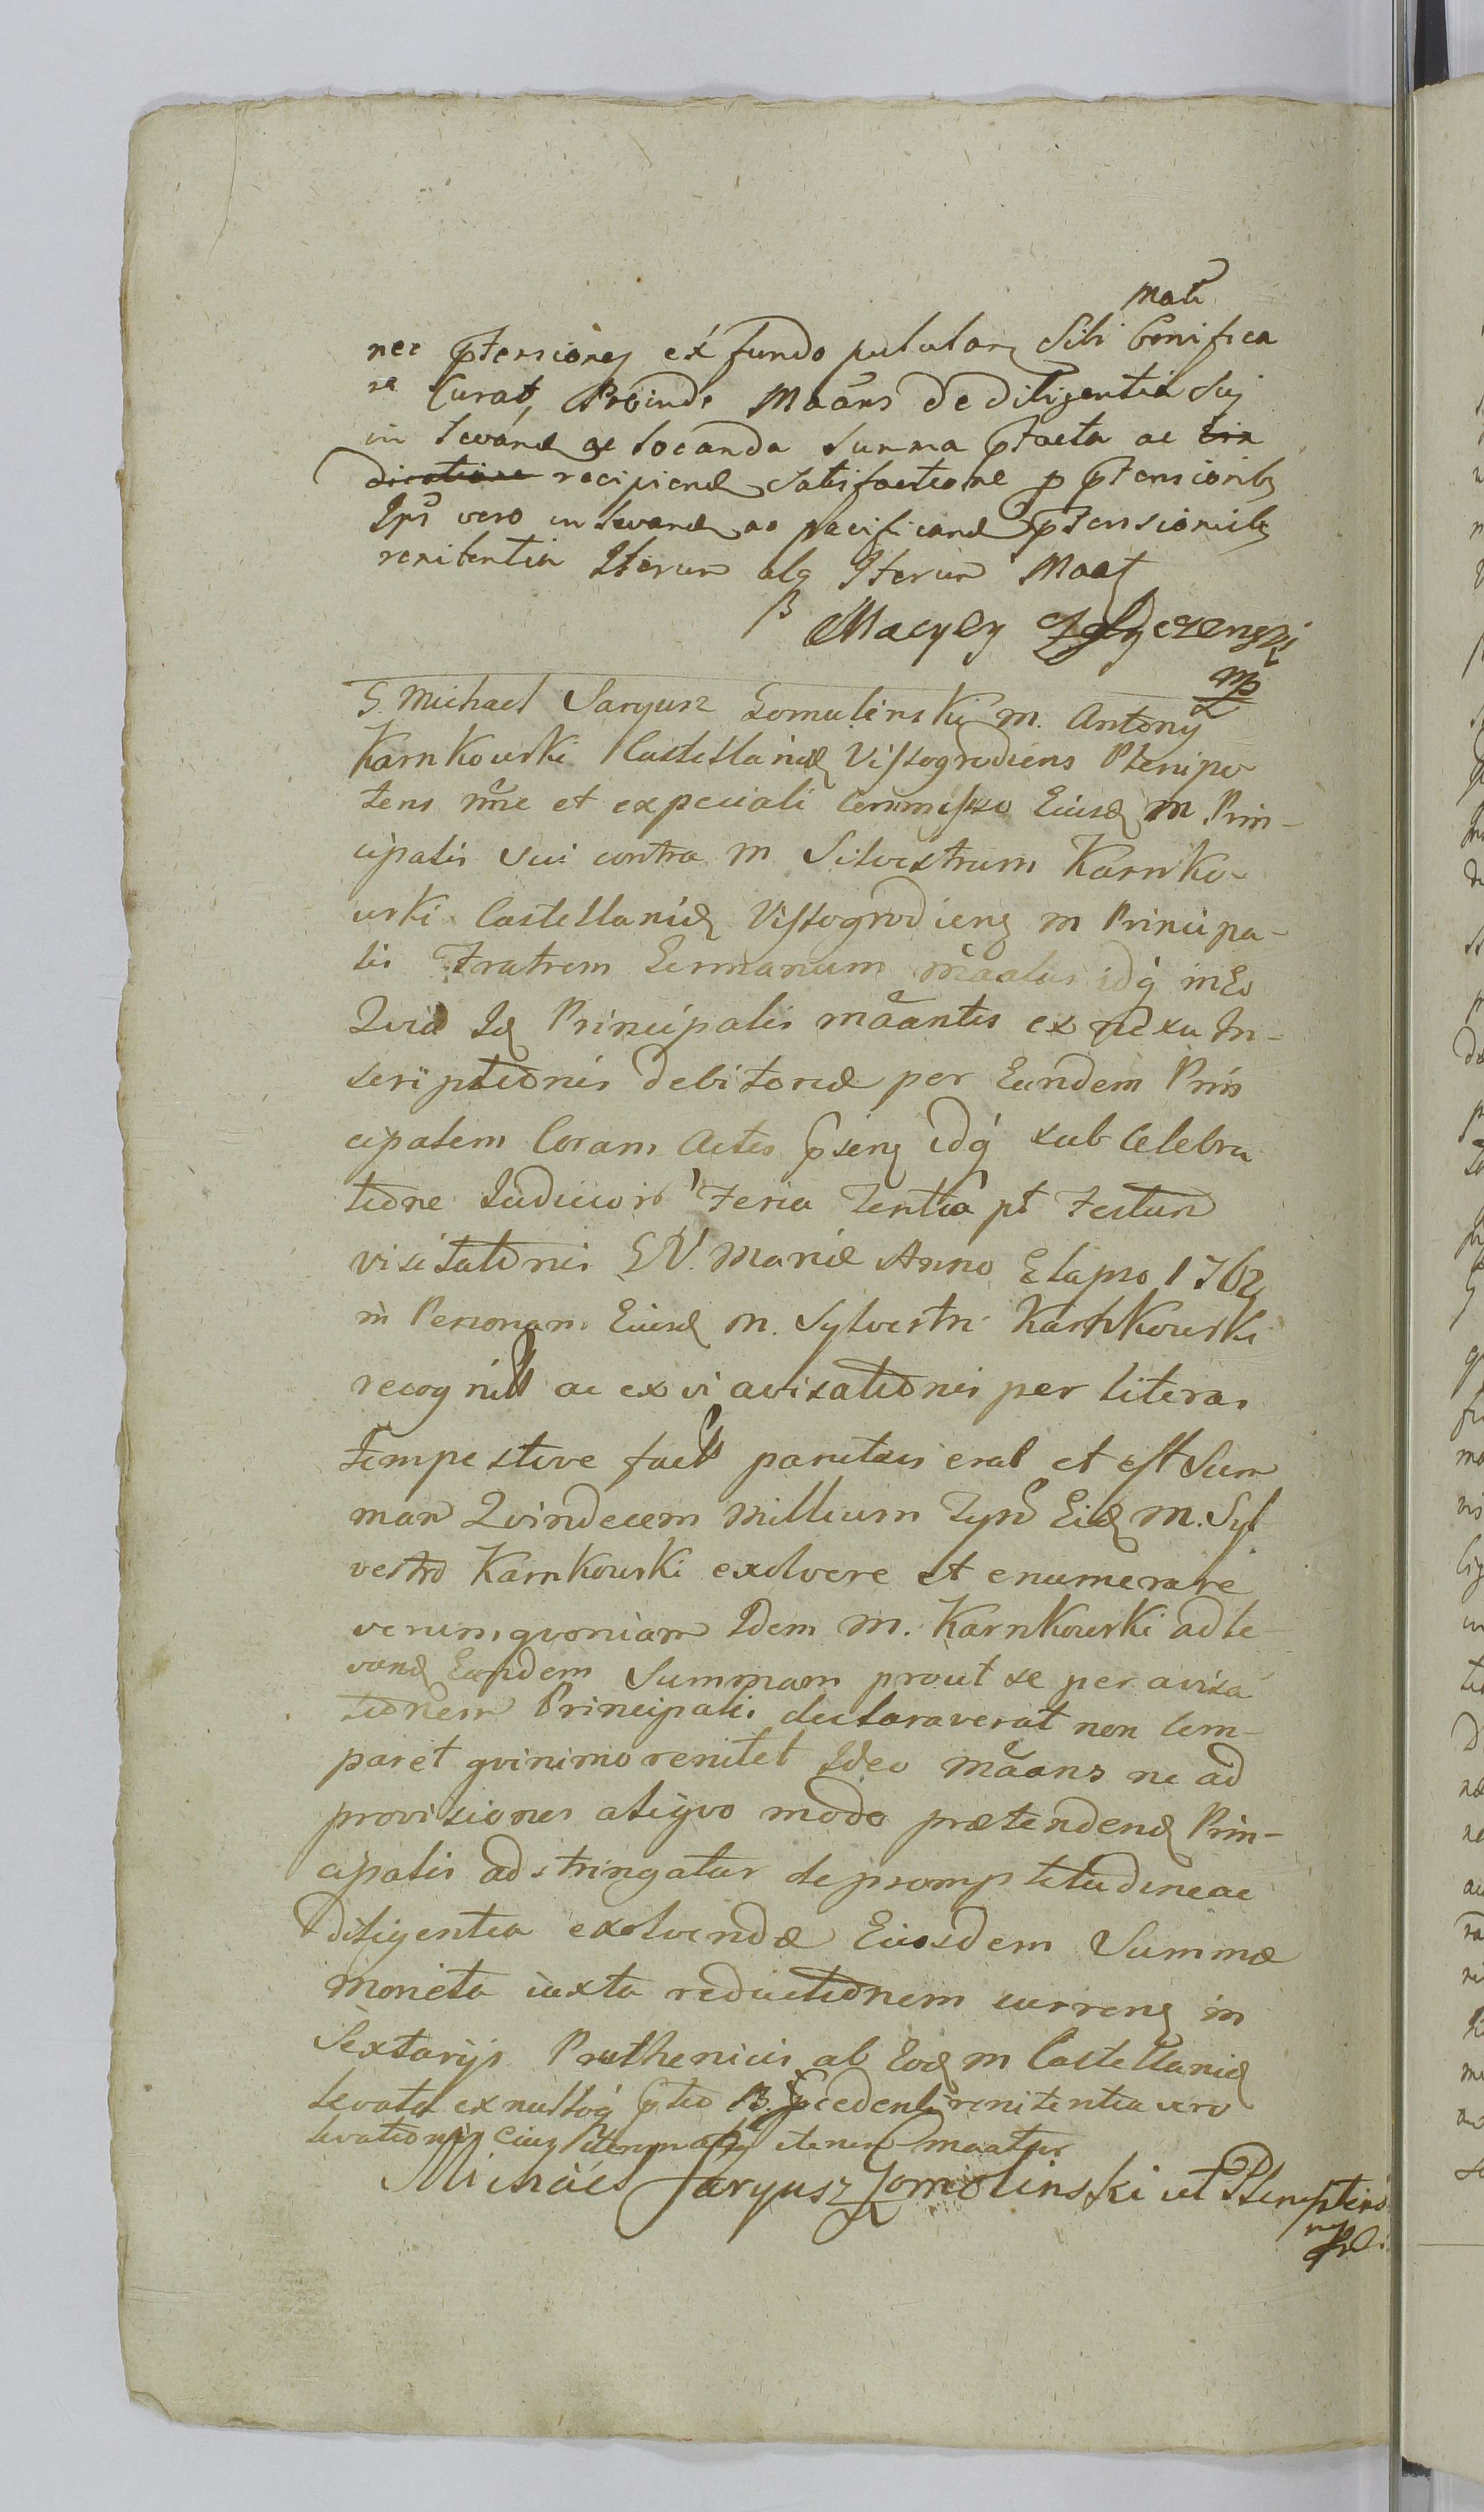 Mati
nec ptensiones ex fundo pululan Sibi bonifica
re Curat, Proinde Maans de diligentia Sui
in levand ac locanda Summa ptacta ac
recipiend Satisfactione p ptensionib
Ips vero in levand ac pacificand ptensionib
renitentia Iterum atq Iterum Maat
Macyey
mp
G. Michael Saryusz Gomulinski M. Antony
Karnkowski Castellanid Vissogrodiens Plenipo-
tens nne et expeciali Commisso Eiusd M. Prin-
cipalis sui contra M Silvestrum Karnko-
wski Castellanid Vissogrodiens M Principa-
lis Fratrem Germanum maatus idq in Eo
Quia Id Principalis maantis ex nexu In-
scriptionis debitoriæ per Eundem Prin
cipalem Coram Actis psens idq sub Celebra
tione Iudicior Feria Tertia pt Festum
visitationis B V. Mariæ Anno Elapso 1762
in Personam Eiusd M. Sylvestri Karnkowski
recognit ac ex vi avisationis per literas
tempestive fact paratus erat et est Sum
mam Quindecem Millium Tynf Eid M. Syl
vestro Karnkowski exolvere et enumerare
verum quoniam Idem M. Karnkowski ad le-
vand Eandem Summam prout se per avisa
tionem Principalis declaraverat non Com-
paret quinimo renitet Ideo maans ne ad
provisiones aliquo modo prætendend Prin-
cipalis adstringatur de promptitudine ac
diligentia exolvendæ Eiusdem Summæ
moneta iuxta reductionem currens in
Sextarijs Pruthenicis ab Eod M Castellanid
levata ex nullog ptio renitentia vero
levationis Eius iterum atq iterum maatur
Michael Saryusz Gomolinski ut